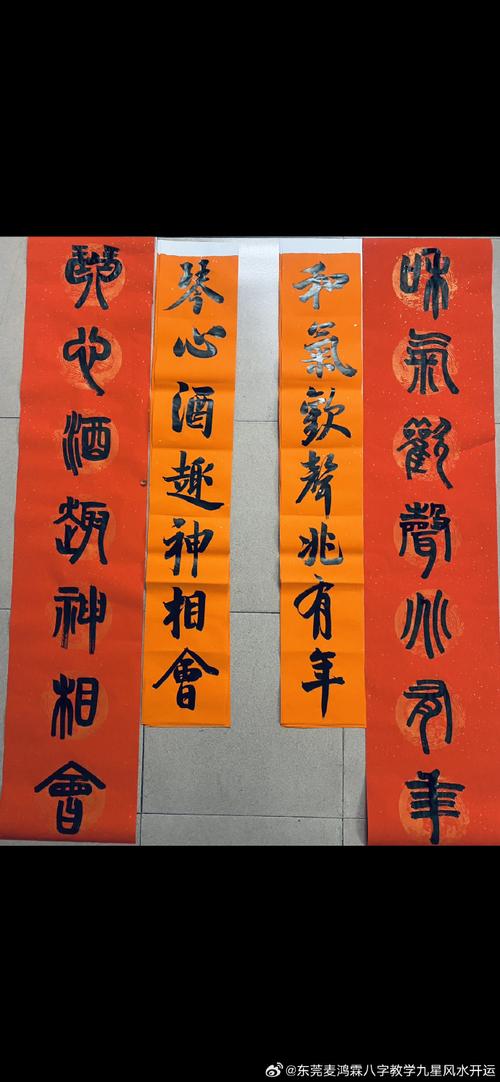 和氣歡聲兆有年
和氣歡聲兆有年
琴心酒趣神相會
琴心酒趣神相會
@东莞麦鸿霖八字教学九星风水开运